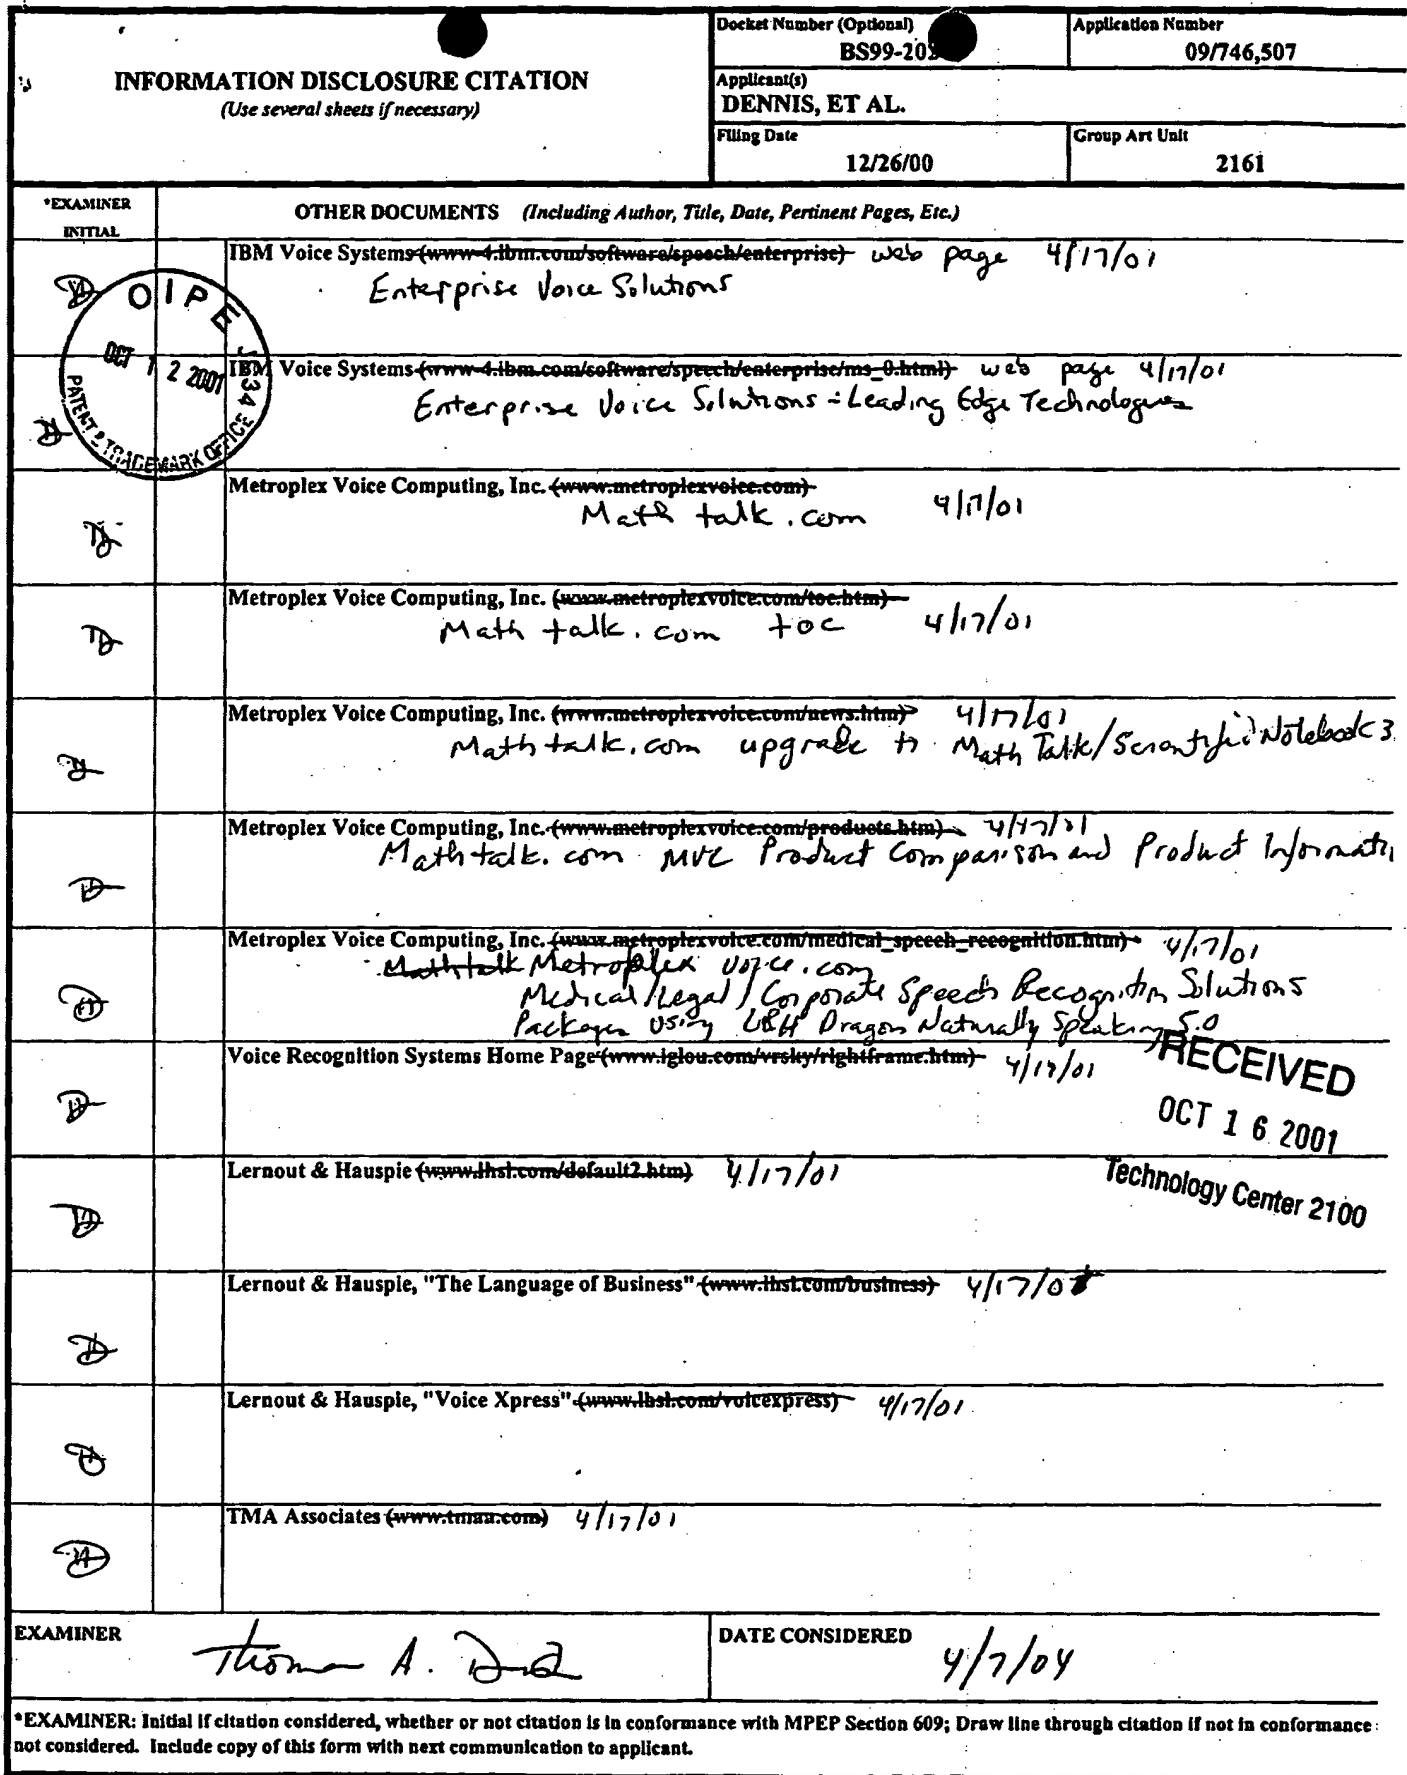 INFORMATION DISCLOSURE CITATION
(Use several sheets if necessary)
Docket Number (Optional)
BS99-20
Application Number
09/746,507
Applicant(s)
DENNIS, ET AL.
Filing Date
12/26/00
Group Art Unit
2161
*EXAMINER
INITIAL
OTHER DOCUMENTS (Including Author, Title, Date, Pertinent Pages, Etc.)
IBM Voice Systems (www-4.ibm.com/software/speech/enterprise) web page 4/17/01
Enterprise Voice Solutions
OIPE
OCT 12 2001
PATENT & TRADEMARK OFFICE
IBM Voice Systems (www-4.ibm.com/software/speech/enterprise/ms_0.html) web page 4/17/01
Enterprise Voice Solutions - Leading Edge Technologies
Metroplex Voice Computing, Inc. (www.metroplexvoice.com)
Math talk.com 4/17/01
Metroplex Voice Computing, Inc. (www.metroplexvoice.com/toc.htm)
Math talk.com toc 4/17/01
Metroplex Voice Computing, Inc. (www.metroplexvoice.com/news.htm) 4/17/01
Math talk.com upgrade to Math Talk/Scientific Notebook 3.
Metroplex Voice Computing, Inc. (www.metroplexvoice.com/products.htm) 4/17/01
Math talk.com MVC Product Comparison and Product Informati
Metroplex Voice Computing, Inc. (www.metroplexvoice.com/medical_speech_recognition.htm) 4/17/01
Mathtalk Metroplex voice.com
Medical/Legal/Corporate Speech Recognition Solutions
Packages using L&H Dragon Naturally Speaking 5.0
Voice Recognition Systems Home Page (www.iglou.com/vrsky/rightframe.htm) 4/17/01
RECEIVED
OCT 16 2001
Technology Center 2100
Lernout & Hauspie (www.lhsl.com/default2.htm) 4/17/01
Lernout & Hauspie, "The Language of Business" (www.lhsl.com/business) 4/17/01
Lernout & Hauspie, "Voice Xpress" (www.lhsl.com/voicexpress) 4/17/01
TMA Associates (www.tmaa.com) 4/17/01
EXAMINER
Thomas A. D
DATE CONSIDERED
4/7/04
*EXAMINER: Initial if citation considered, whether or not citation is in conformance with MPEP Section 609; Draw line through citation if not in conformance
not considered. Include copy of this form with next communication to applicant.